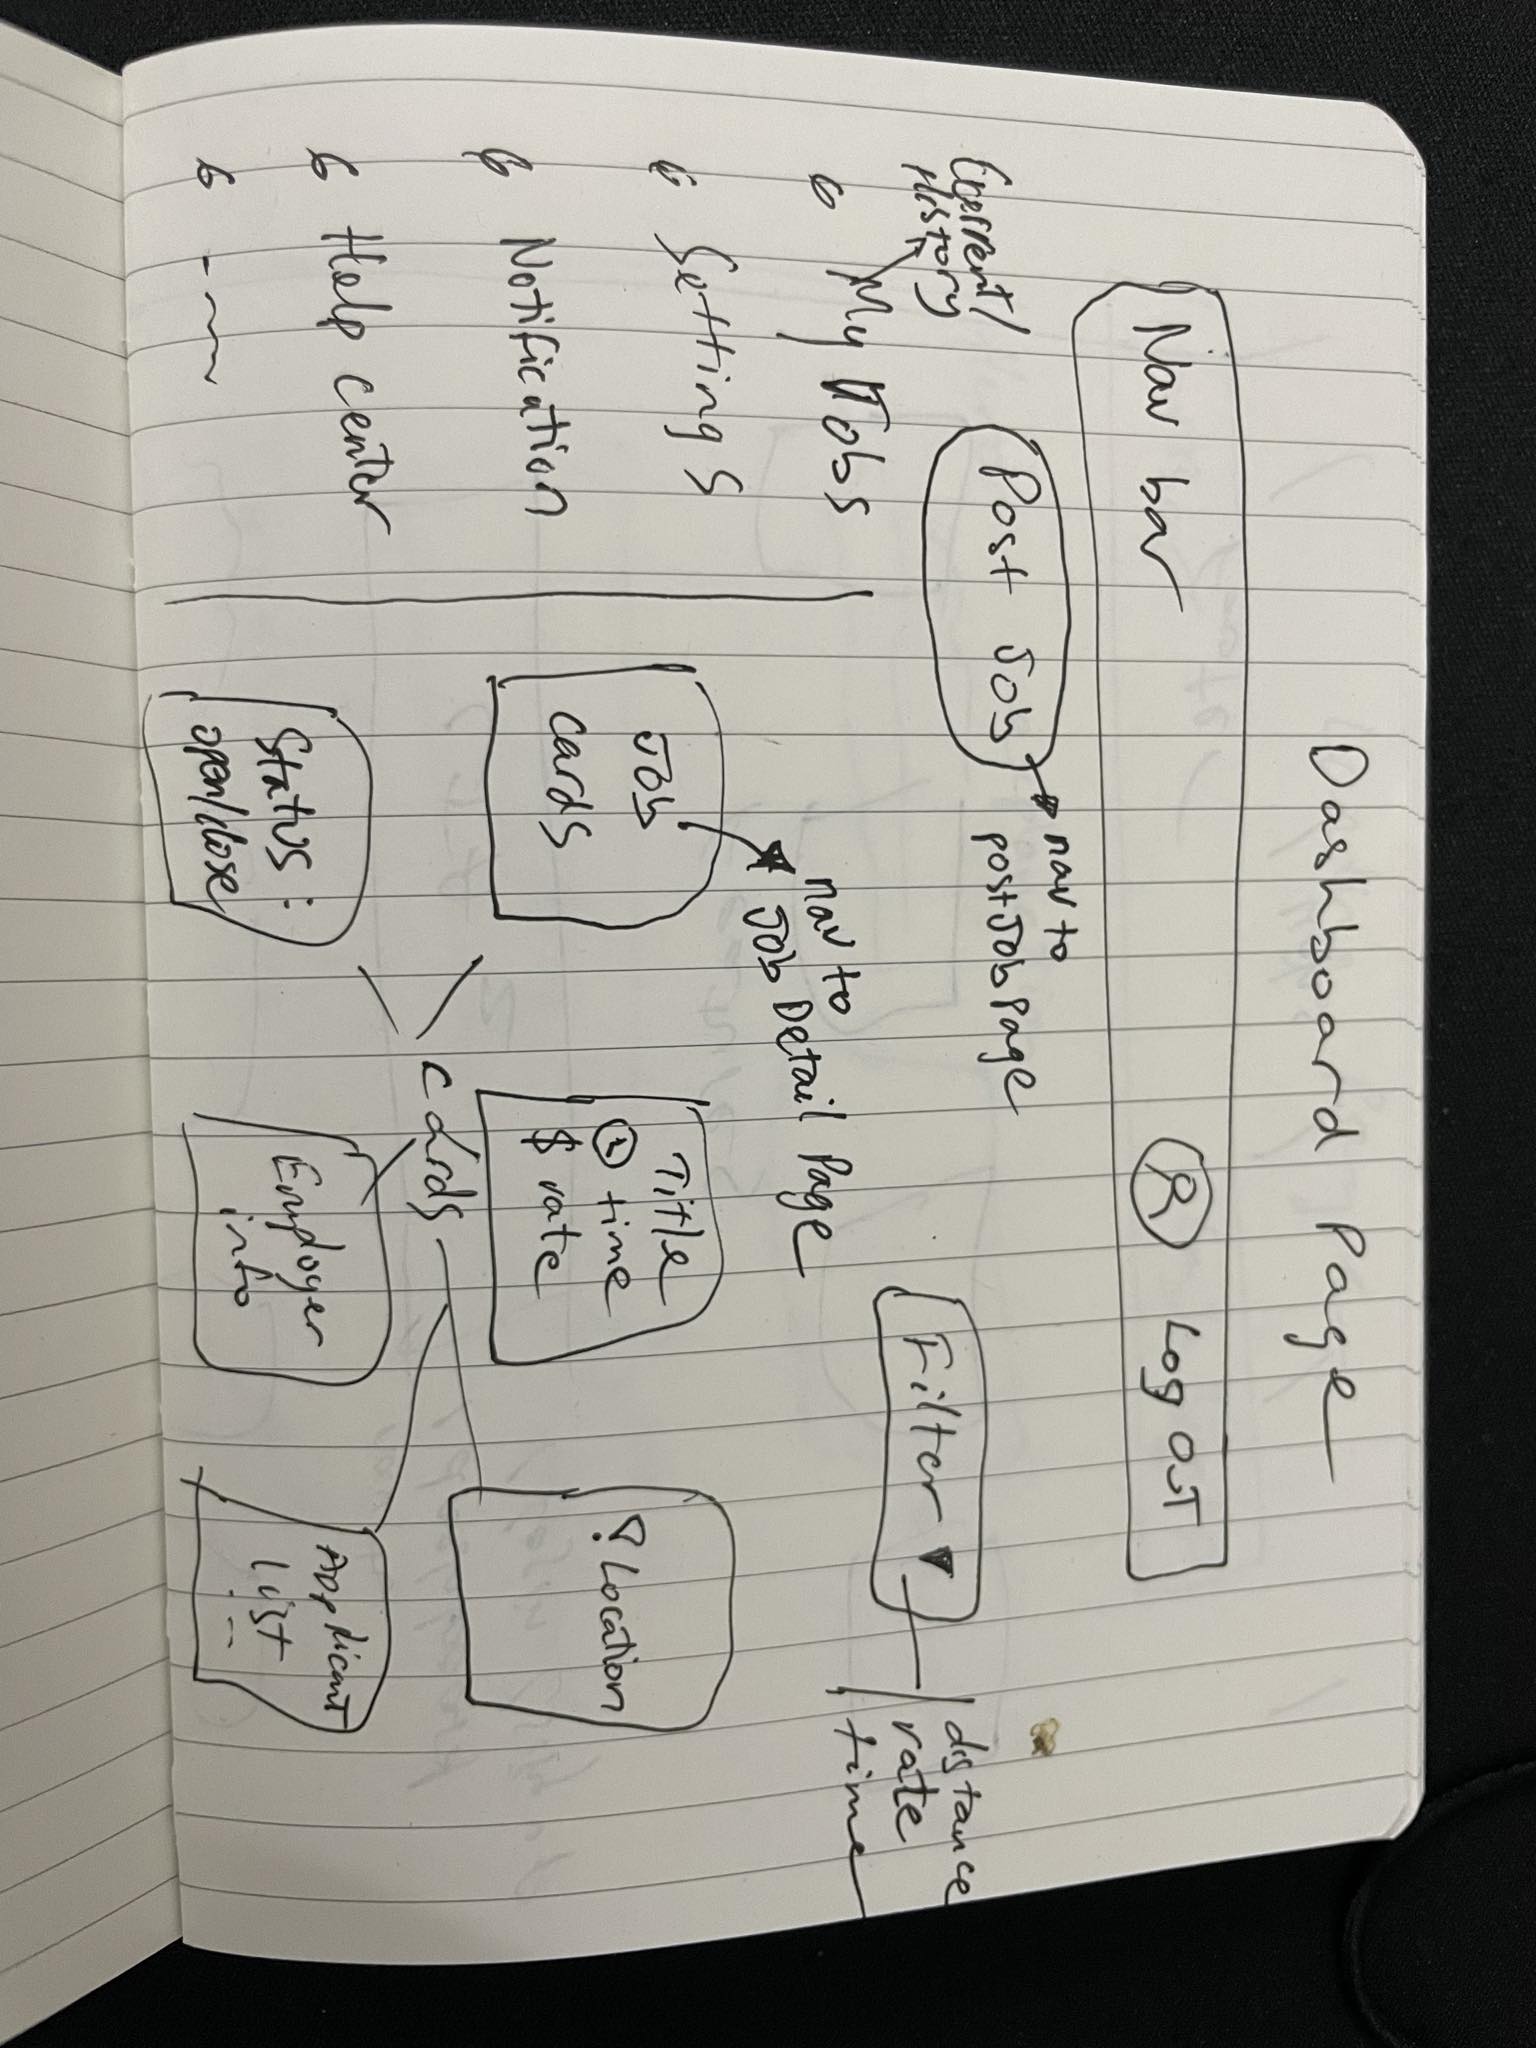 Dashboard Page
Nav bar
Log out
Post Job
nav to
post Job page
Filter
distance
rate
time
Current/
History
My Jobs
Settings
Notification
Help center
nav to
Job Detail Page
Job
cards
Title
time
$ rate
Location
cards
Status:
open/close
Employer
info
Applicant
List